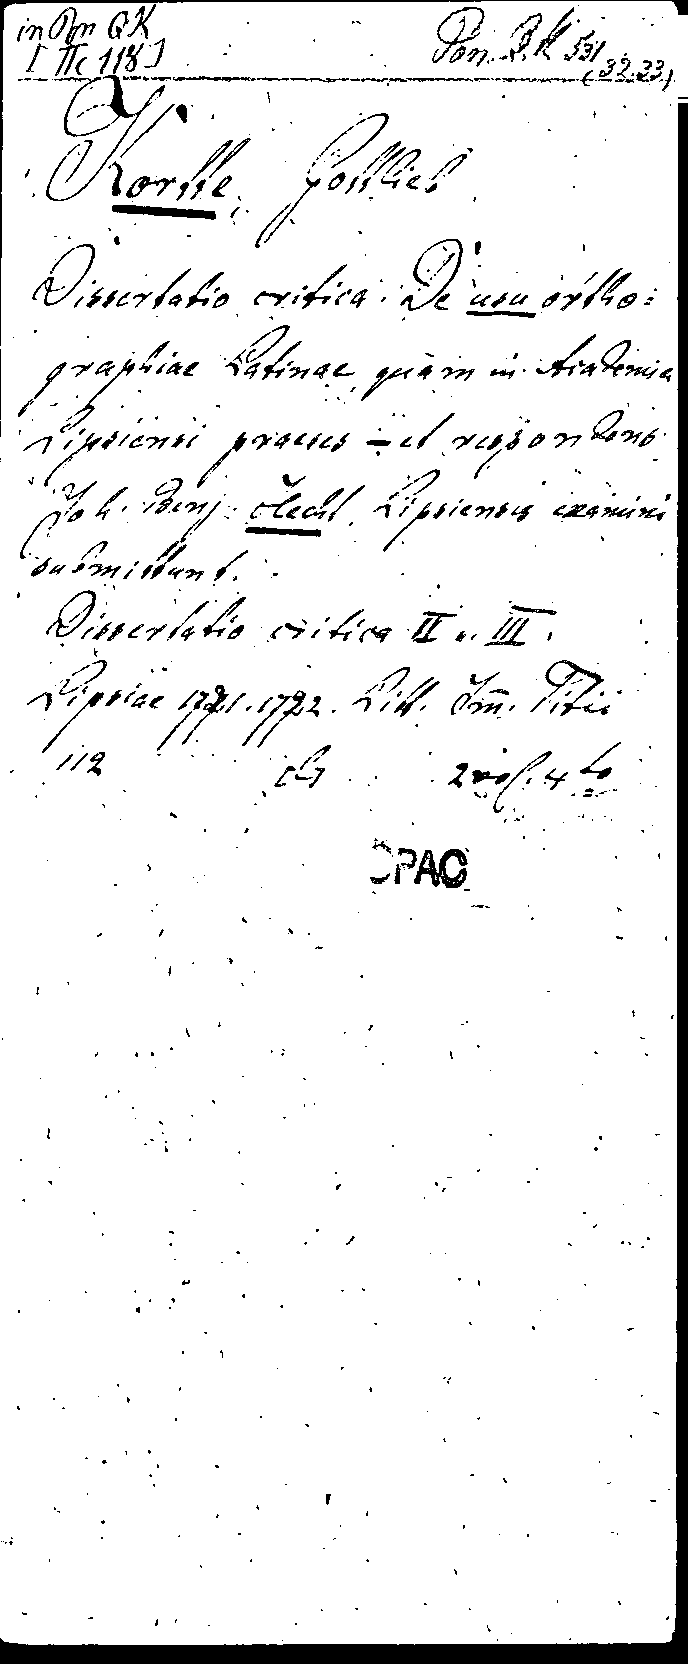 in Pon QK
[ IIc 118 ]
Pon. QK 531
(32.33)
Kortte, Gottlieb
Dissertatio critica. De usu ortho=
graphiae Latinae, quam in Academia
Lipsiensi praeses — et respondens
Joh. Benj. Hecht, Lipsiensis examini
submittunt.
Dissertatio critica II u. III.
Lipsiae 1721. 1722. Litt. Im. Titii
112 2 vol. 4to
OPAC